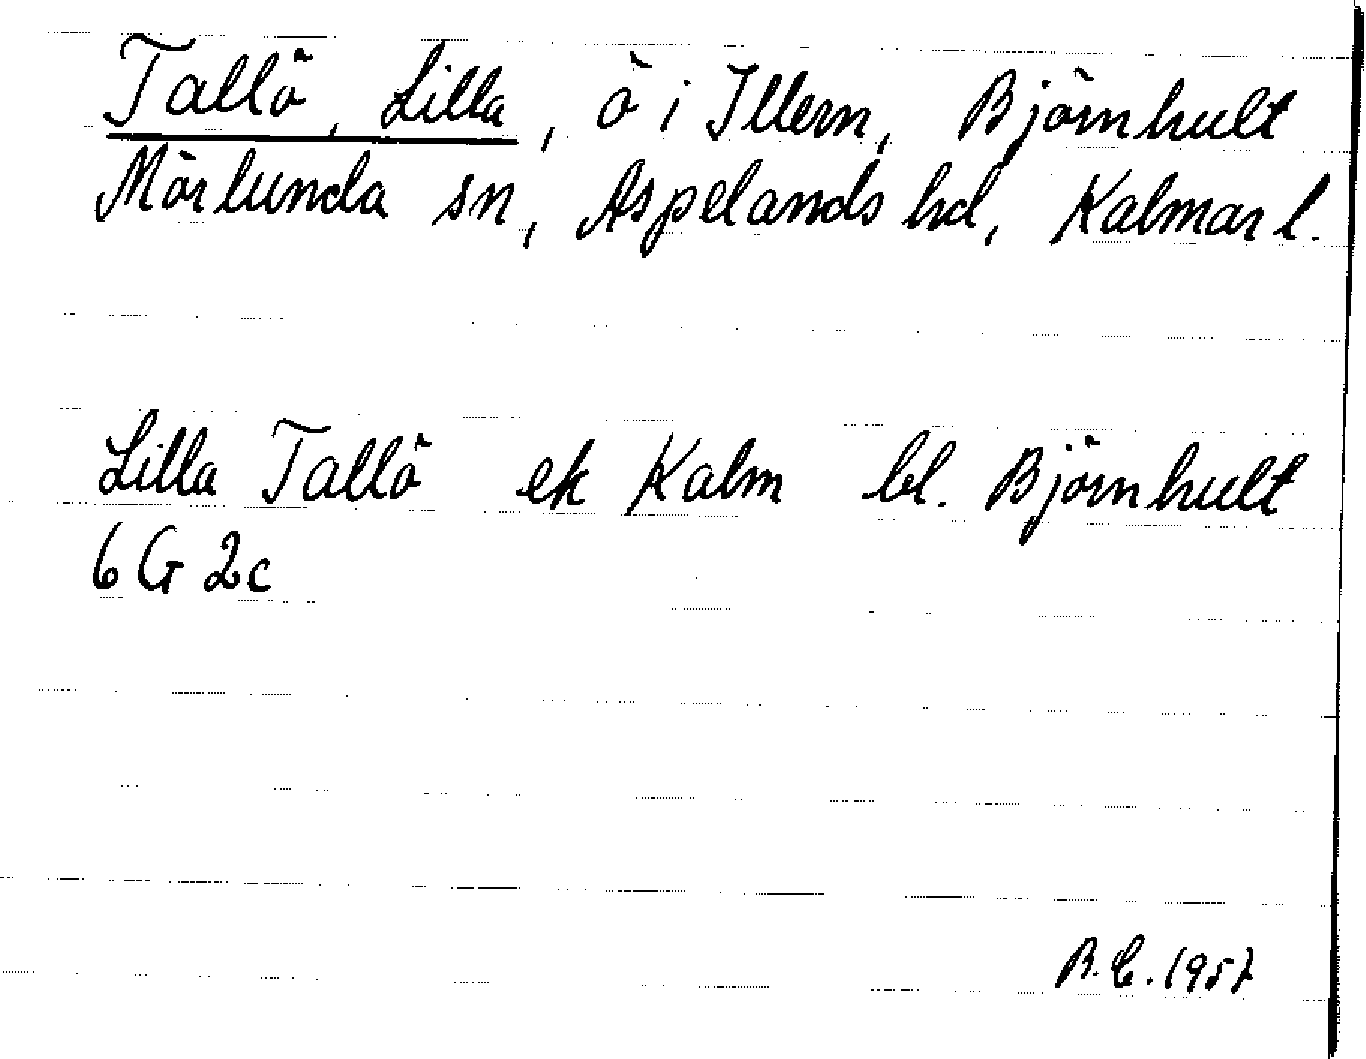 Tallö, Lilla, ö i Illern, Björnhult
Mörlunda sn, Aspelands hd, Kalmar l.
Lilla Tallö ek Kalm bl. Björnhult
6 G 2c
B.C. 1957